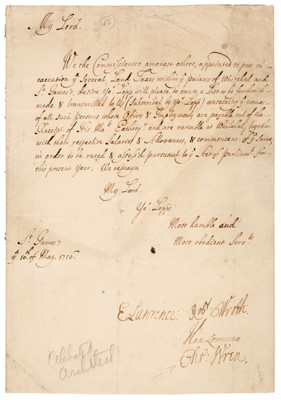 My Lord.
We the Commissioners amongst others, appointed to put in
execution yᵉ Several Land Taxes within yᵉ palaces of Whitehall and
St James's, desire yoʳ Lopp will please to cause a List to be furnished
made & transmitted to Us (Subscribed by yoʳ Lopp) containing yᵉ names
of all such persons whose Offices & Employments are payable out of the
Receipt of His Maᵗˢ Excheqʳ and are taxable at Whitehall, together
with their respective Salarys & Allowances, & commencemᵗ of yᵉ same,
in order to be rated & assess'd pursuant to yᵉ Act of Parliamᵗ for
this present year. We remain
My Lord.
Yoʳ Lopps
Most humble and
Most obedient Servᵗˢ
St James's
yᵉ 16th of May. 1716.
E Lawrence Robᵗ Wroth
Chrʳ Wren
Celebrated
Architect